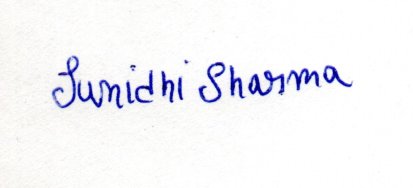 Sunidhi Sharma